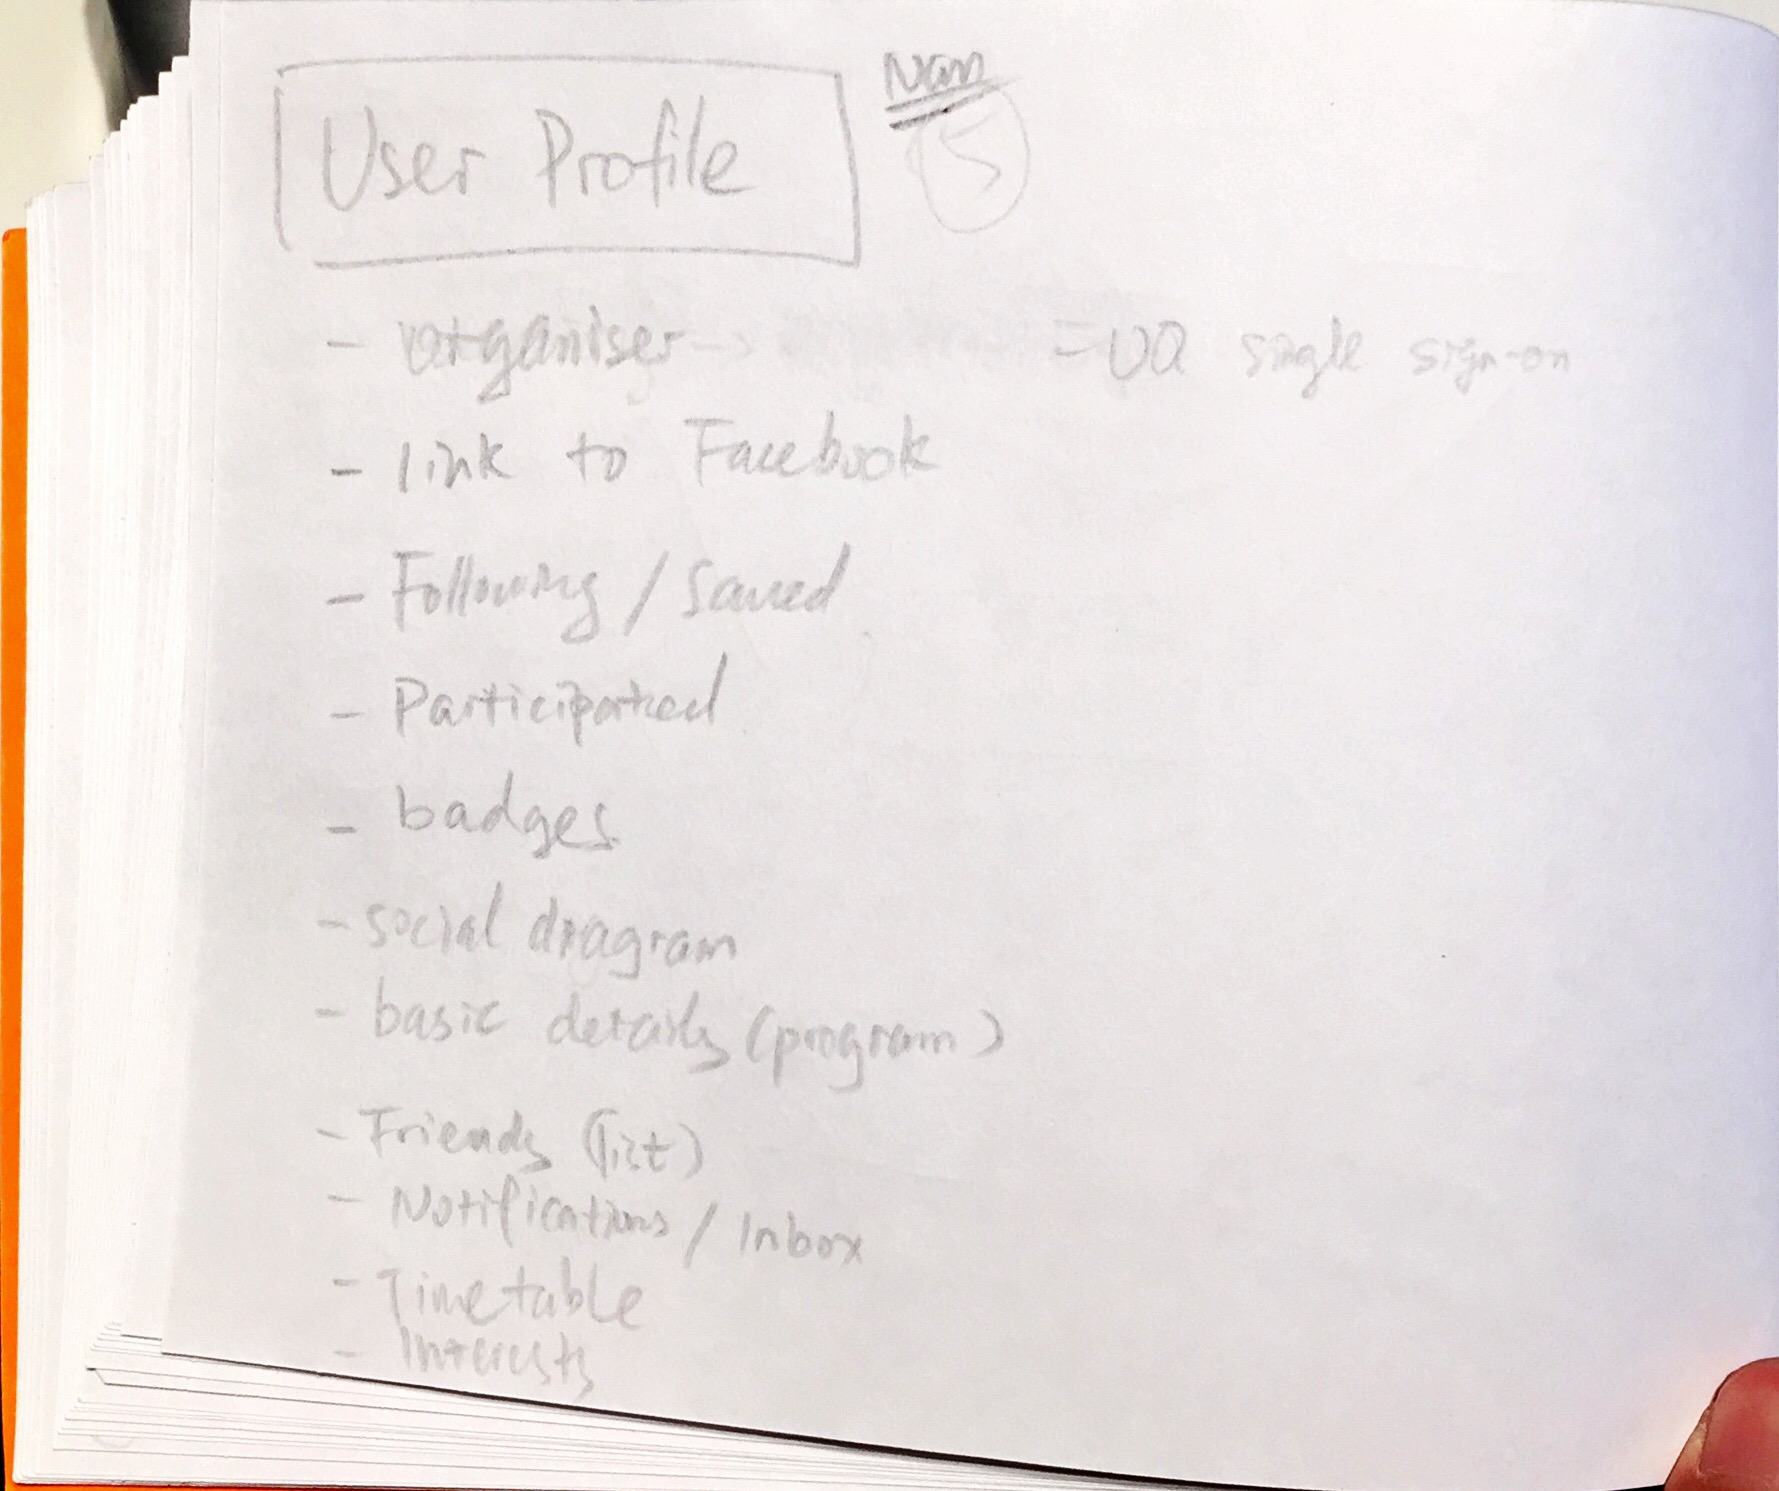 User Profile
Nan
5
- organiser → = UQ single sign-on
- link to Facebook
- Following / Saved
- Participated
- badges
- social diagram
- basic details (program)
- Friends (list)
- Notifications / Inbox
- Timetable
- Interests